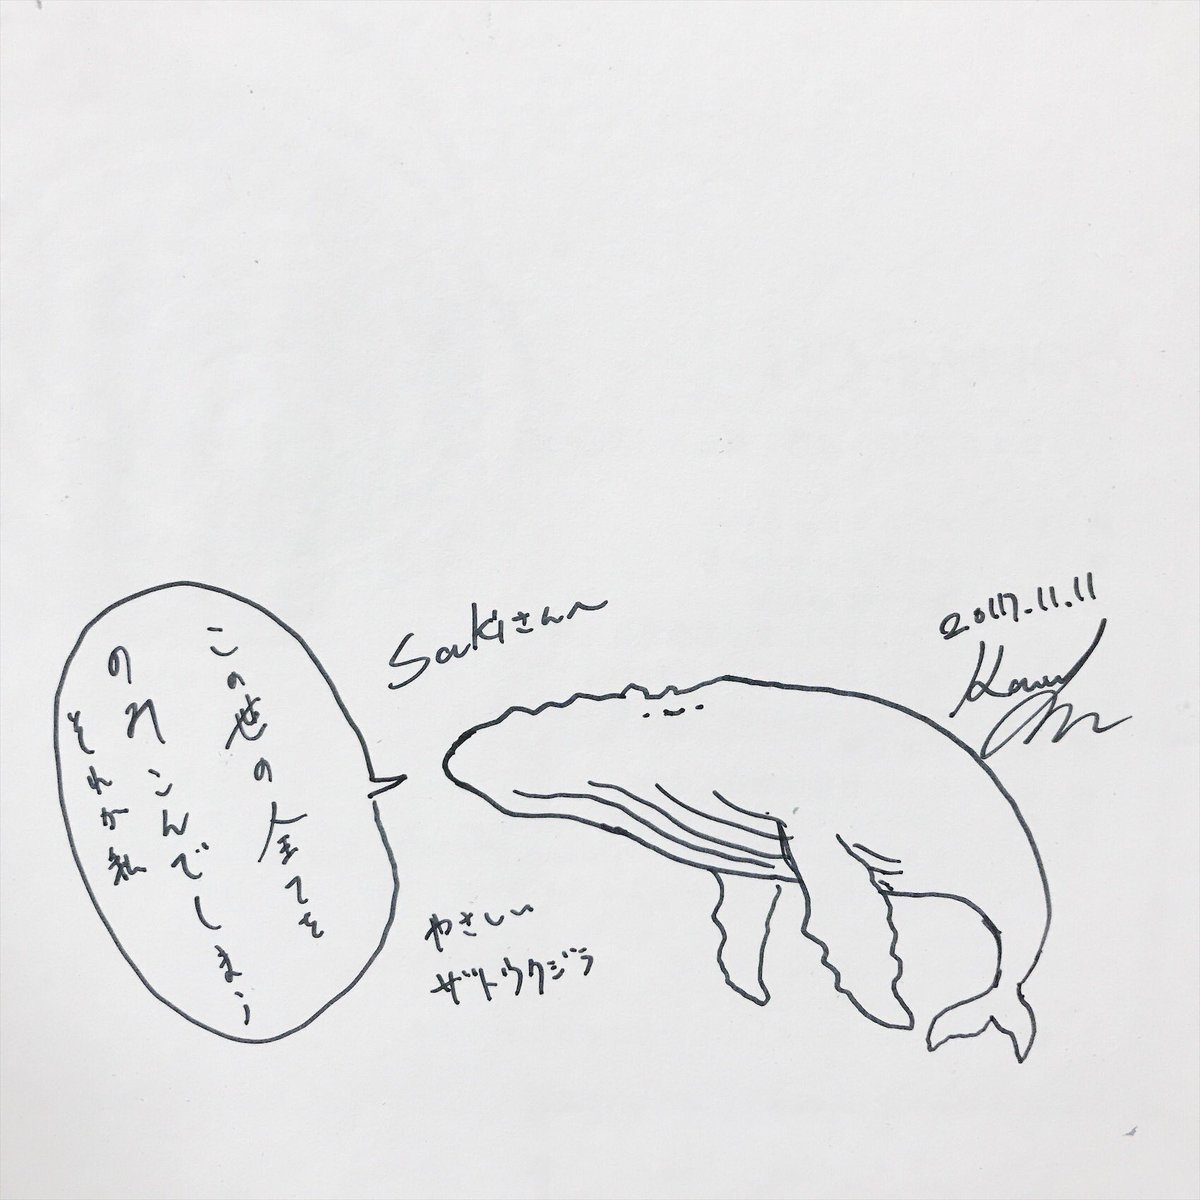 2017.11.11
Sakiさんへ
この世の全てを
のみこんでしまう
それが私
やさしい
ザトウクジラ